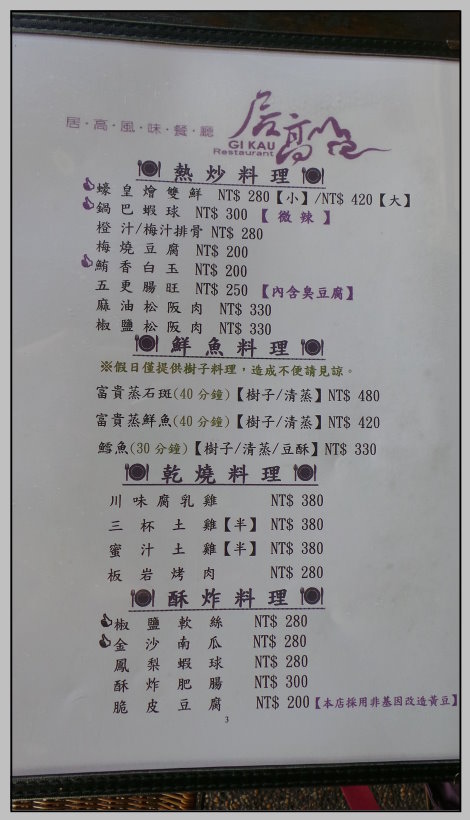 居・高・風・味・餐・廳
居高
GI KAU
Restaurant
熱炒料理
蠔皇燴雙鮮 NT$ 280【小】/NT$ 420【大】
鍋巴蝦球 NT$ 300【微辣】
橙汁/梅汁排骨 NT$ 280
梅燒豆腐 NT$ 200
鮪香白玉 NT$ 200
五更腸旺 NT$ 250【內含臭豆腐】
麻油松阪肉 NT$ 330
椒鹽松阪肉 NT$ 330
鮮魚料理
※假日僅提供樹子料理，造成不便請見諒。
富貴蒸石斑(40分鐘)【樹子/清蒸】NT$ 480
富貴蒸鮮魚(40分鐘)【樹子/清蒸】NT$ 420
鱈魚(30分鐘)【樹子/清蒸/豆酥】NT$ 330
乾燒料理
川味腐乳雞 NT$ 380
三杯土雞【半】 NT$ 380
蜜汁土雞【半】 NT$ 380
板岩烤肉 NT$ 280
酥炸料理
椒鹽軟絲 NT$ 280
金沙南瓜 NT$ 280
鳳梨蝦球 NT$ 280
酥炸肥腸 NT$ 300
脆皮豆腐 NT$ 200【本店採用非基因改造黃豆】
3